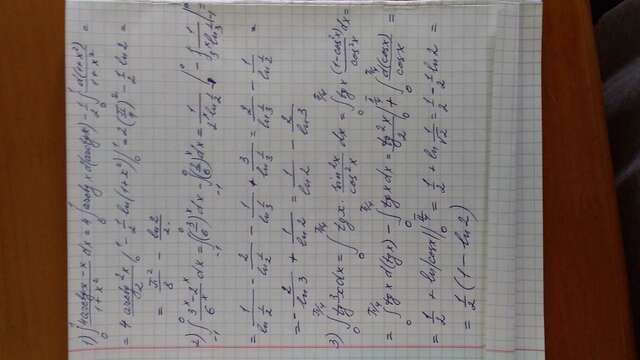 1) ∫₀¹ (4arctgx - x)/(1+x²) dx = 4∫₀¹ arctgx · d(arctgx) - 1/2 ∫₀¹ d(1+x²)/(1+x²) =
= 4 arctg²x/2 |₀¹ - 1/2 ln(1+x²)|₀¹ = 2(π/4)² - 1/2 ln2 =
= π²/8 - ln2/2.
2) ∫₋₁⁰ (3ˣ-2ˣ)/6ˣ dx = ∫₋₁⁰ (1/2)ˣ dx - ∫₋₁⁰ (1/3)ˣ dx =
= 1/ln 1/2 - 2/ln 1/2 - 1/ln 1/3 + 3/ln 1/3 = 2/ln 1/3 - 1/ln 1/2 =
= - 2/ln3 + 1/ln2 = 1/ln2 - 2/ln3
3) ∫₀^π/4 tg³x dx = ∫₀^π/4 tgx · sin²x/cos²x dx = ∫₀^π/4 tgx (1-cos²x)/cos²x dx =
= ∫₀^π/4 tgx d(tgx) - ∫₀^π/4 tgx dx = tg²x/2 |₀^π/4 + ∫₀^π/4 d(cosx)/cosx =
= 1/2 + ln|cosx| |₀^π/4 = 1/2 + ln 1/√2 = 1/2 - 1/2 ln2 =
= 1/2 (1 - ln2)